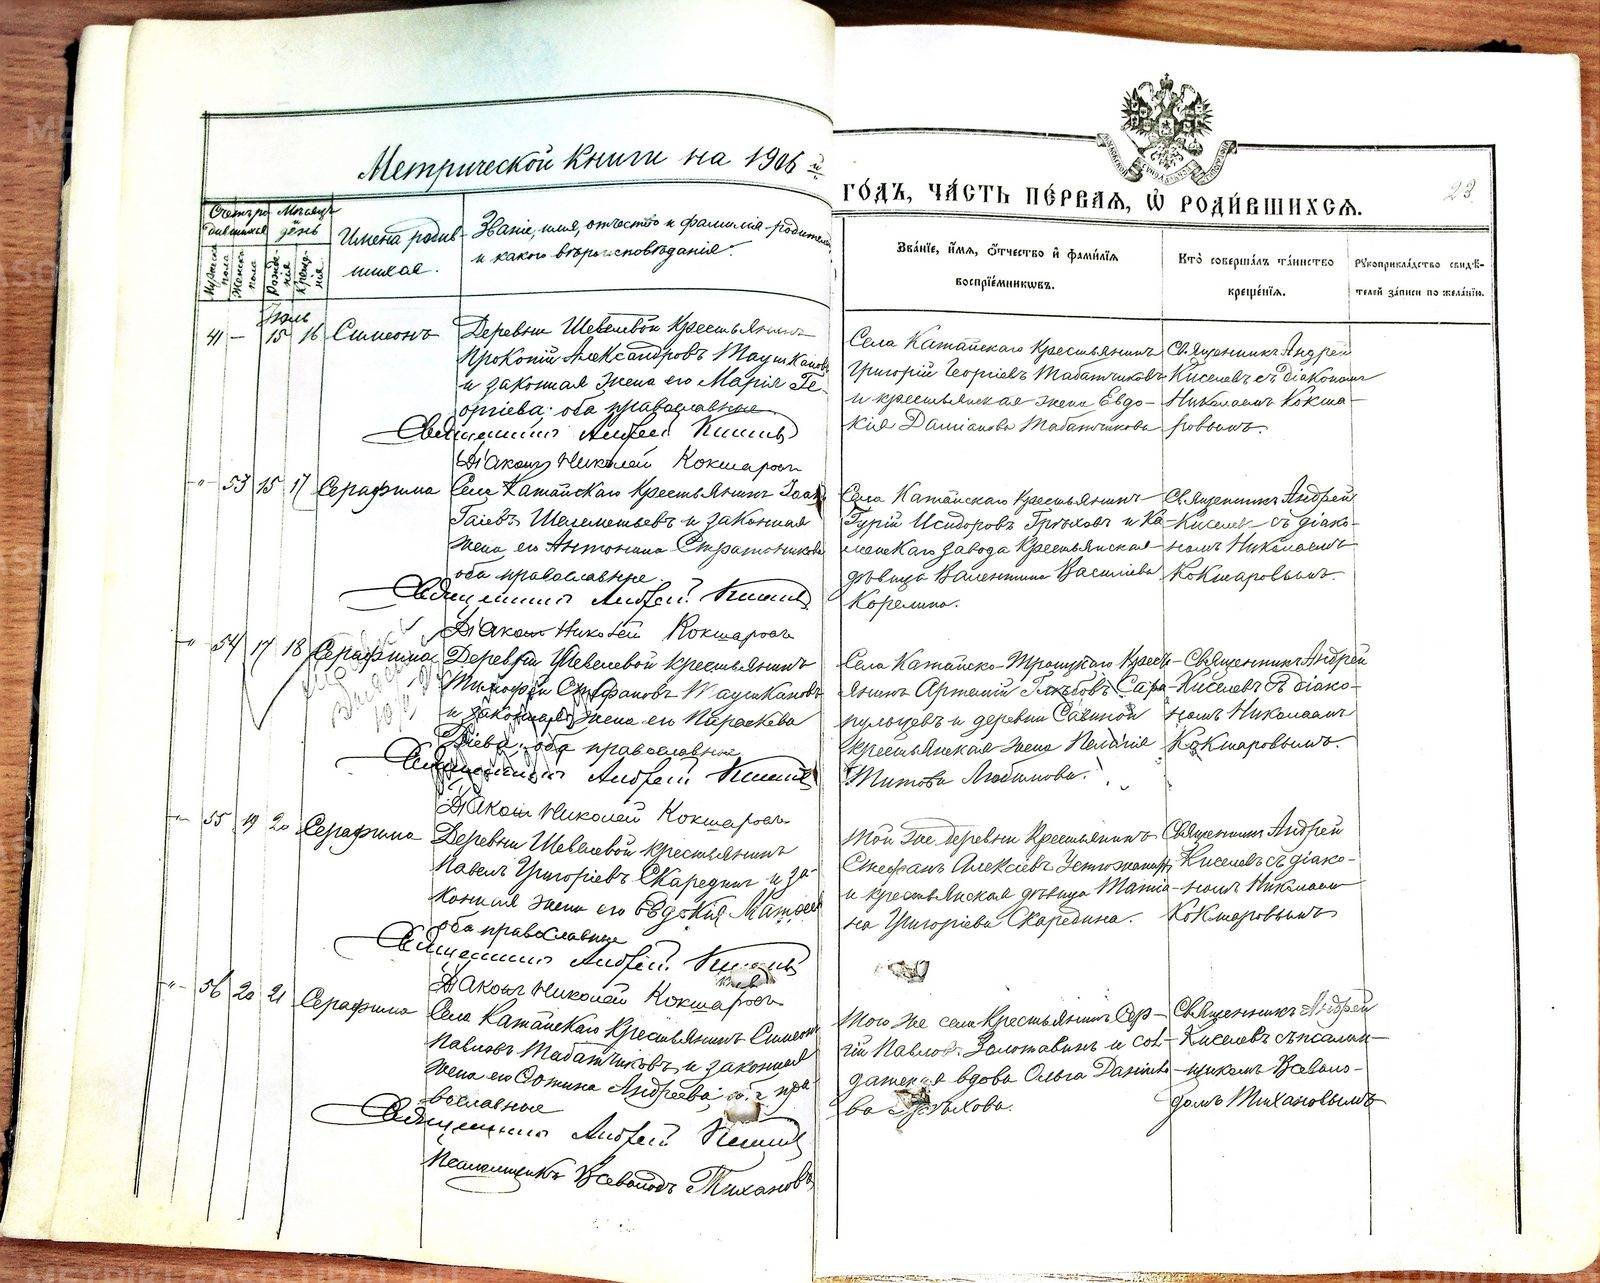 Метрической книги на 1906 й
годъ, часть первая, ѡ родившихся.
23
Счетъ ро-
дившихся
Мѣсяцъ
день
Мужска
пола
Женска
пола
Рожде-
нія
Креще-
нія
Имена родив-
шихся.
Званіе, имя, отчество и фамилія родителей
и какого вѣроисповѣданія.
Званіе, имя, отчество и фамилія
воспріемниковъ.
Кто совершалъ таинство
крещенія.
Рукоприкладство свидѣ-
телей записи по желанію.
Іюль
41 — 15 16 Симеонъ
Деревни Шевелевой крестьянинъ
Прокопій Александровъ Таушкановъ
и законная жена его Марія Ге-
оргіева. оба православные.
Священникъ Андрей Киселевъ
Діаконъ Николай Кокшаровъ
Села Катайскаго крестьянинъ
Григорій Георгіевъ Табатчиковъ
и крестьянская жена Евдо-
кія Даміанова Табатчикова
Священникъ Андрей
Киселевъ съ діакономъ
Николаемъ Кокша-
ровымъ.
" 53 15 17 Серафима
Села Катайскаго крестьянинъ
Гаіевъ Шелементьевъ и законная
жена его Антонина Стратоникова
оба православные.
Священникъ Андрей Киселевъ
Діаконъ Николай Кокшаровъ
Села Катайскаго крестьянинъ
Гурій Исидоровъ Грѣховъ и Ка-
менскаго завода крестьянская
дѣвица Валентина Василіева
Корелина.
Священникъ Андрей
Киселевъ съ діако-
номъ Николаемъ
Кокшаровымъ.
" 54 17 18 Серафима
Деревни Шевелевой крестьянинъ
Тимофей Стефановъ Таушкановъ
и законная жена его Параскева
оба православные
Священникъ Андрей Киселевъ
Діаконъ Николай Кокшаровъ
Села Катайско-Троицкаго крестъ-
янинъ Артемій Глѣбовъ Сара-
пульцевъ и деревни Савиной
крестьянская жена Пелагія
Титова Любимова.
Священникъ Андрей
Киселевъ съ діако-
номъ Николаемъ
Кокшаровымъ.
" 55 19 20 Серафима
Деревни Шевелевой крестьянинъ
Павелъ Григоріевъ Скарединъ и за-
конная жена его Евдокія
оба православные
Священникъ Андрей Киселевъ
Діаконъ Николай Кокшаровъ
Той же деревни крестьянинъ
Стефанъ Алексіевъ
и крестьянская дѣвица Татіа-
на Григоріева Скаредина.
Священникъ Андрей
Киселевъ съ діако-
номъ Николаемъ
Кокшаровымъ
" 56 20 21 Серафима
Села Катайскаго крестьянинъ Симеонъ
Павловъ Табатчиковъ и законная
жена его Фотина Андреева, пра-
вославные
Священникъ Андрей Киселевъ
Псаломщикъ Всеволодъ Тихановъ
Того же села крестьянинъ Сер-
гій Павлов. Золотавинъ и сол-
датская вдова Ольга Даніило-
ва Грѣхова.
Священникъ Андрей
Киселевъ съ псалом-
щикомъ Всеволо-
домъ Тихановымъ